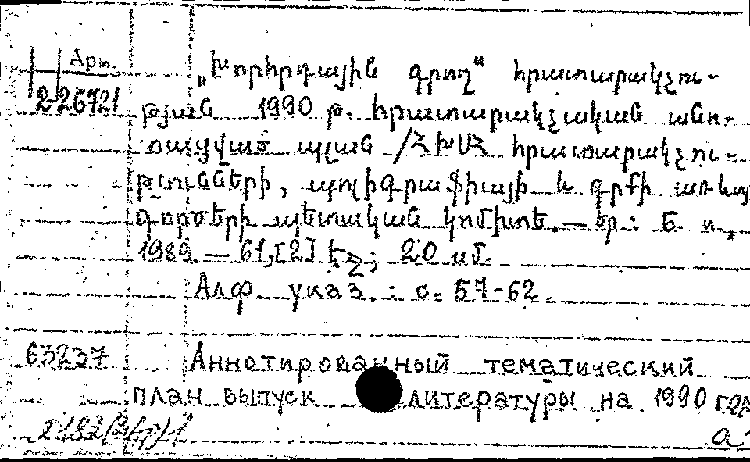 Арм.
„Խորհրդային գրող“ հրատարակչու-
226721
թյան 1990 թ. հրատարակչական անո-
տացված պլան /ՀԽՍՀ հրատարակչու-
թյունների, պոլիգրաֆիայի և գրքի առևտ
գործերի պետական կոմիտե. — Եր.: Б. и.,
1989 — 61,[2] էջ; 20 սմ.
Алф. указ.: с. 57-62.
63237 Аннотированный тематический
план выпуск литературы на 1990 год